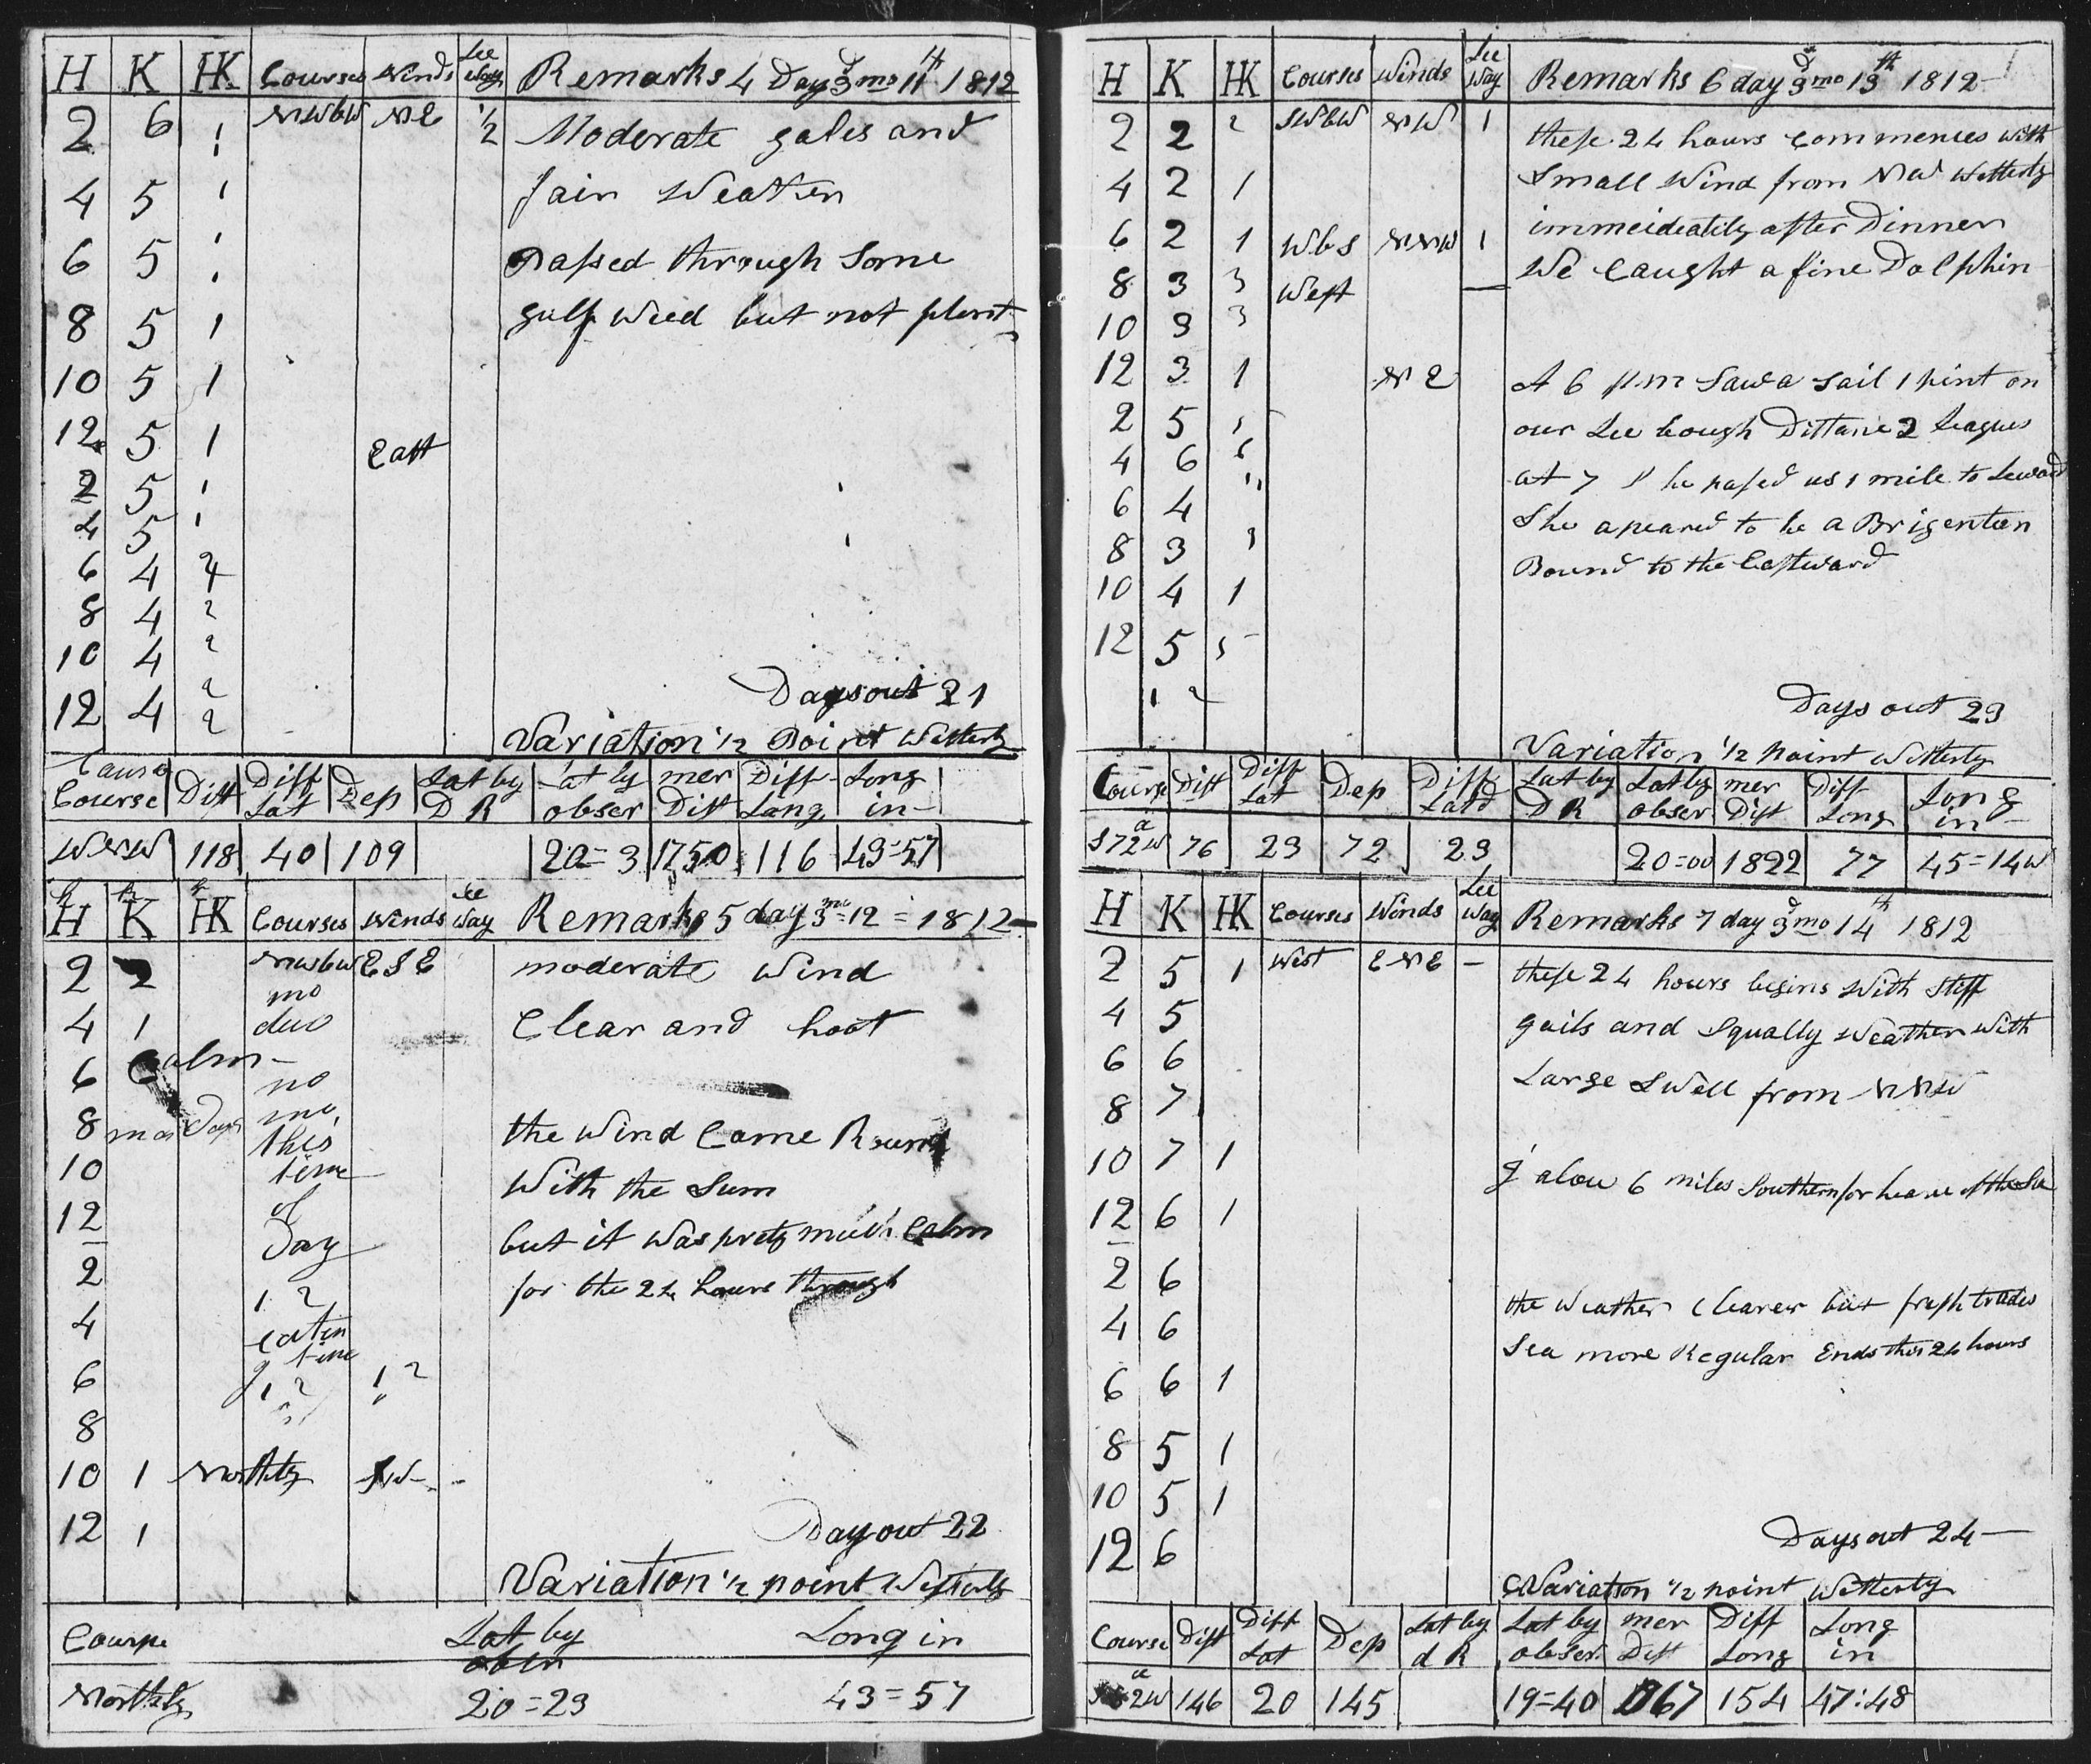 H K HK Courses Winds Lee Way Remarks 4 Day 3d mo 11th 1812
2 6 1 NWbW NE 1/2 Moderate gales and
4 5 1 fair Weather
6 5 1 Passed through Some
8 5 1 gulf Weed but not plenty
10 5 1
12 5 1 East
2 5 1
4 5 1
6 4 2
8 4 2
10 4 2
Days out 21
12 4 2
Variation 1/2 Point Westerly
Course Dist Diff Lat Dep Lat by D R Lat by obser mer Dist Diff Long Long in
WNW 118 40 109 20=3 1750 116 43=57
H K HK Courses Winds Lee Way Remarks 5 day 3mo=12=1812
2 2 NWbW ESE moderate Wind
mo
4 1 duo Clear and hoot
6 Calm
no
8 mo
this the Wind Came Round
10 time With the Sun
12 of
Day but it Was prety much Calm
2 for the 24 hours through
12
4 eatin
g time
6 12 12
8
10 1 Northly NW
12 1 Day out 22
Variation 1/2 point Westerly
Course Lat by obsr Long in
Northly 20=23 43=57
H K HK Courses Winds Lee Way Remarks 6 day 3d mo 13th 1812
2 2 2 SWbW NW 1 these 24 hours Commences with
4 2 1 Small Wind from NW Westerly
6 2 1 WbS NNW 1 immeideatily after Dinner
8 3 3 West We Caught a fine Dolphin
10 3 3
12 3 1 NE At 6 P.m Saw a Sail 1 pint on
2 5 1 our Lee bough Distanc 2 leagues
4 6 at 7 She pased us 1 mile to Leward
6 4 She apeared to be a Brigenteen
8 3 3 Bound to the Eastward
10 4 1
12 5
12 Days out 23
Variation 1/2 point Westerly
Course Dist Diff Lat Dep Diff Latd Lat by D R Lat by obser mer Dist Diff Long Long in
S72dW 76 23 72 23 20=00 1822 77 45=14W
H K HK Courses Winds Lee Way Remarks 7 day 3d mo 14th 1812
2 5 1 West ENE – these 24 hours begins With Stiff
4 5 gails and Squally Weather with
6 6 Large Swell from NNW
8 7
10 7 1 I alow 6 miles Southern for heave of the Sea
12 6 1
2 6 the Weather Clearer but fresh trades
4 6 Sea more Regular Ends this 24 hours
6 6 1
8 5 1
10 5 1
12 6 Days out 24
Variation 1/2 point Westerly
Course Dist Diff Lat Dep Lat by d R Lat by obser mer Dist Diff Long Long in
2W 146 20 145 19=40 1967 154 47:48